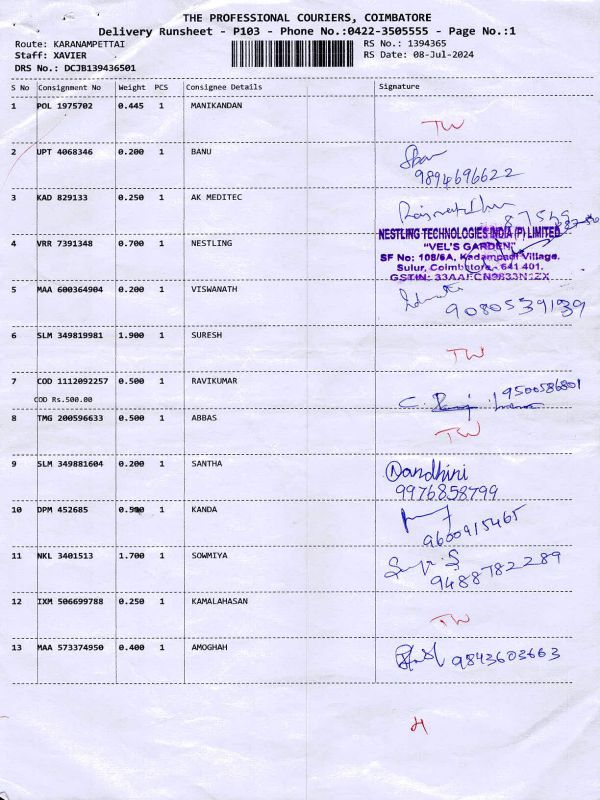 THE PROFESSIONAL COURIERS, COIMBATORE
Delivery Runsheet - P103 - Phone No.:0422-3505555 - Page No.:1
Route: KARANAMPETTAI RS No.: 1394365
Staff: XAVIER RS Date: 08-Jul-2024
DRS No.: DCJB139436501
S No Consignment No Weight PCS Consignee Details Signature
1 POL 1975702 0.445 1 MANIKANDAN
TW
2 UPT 4068346 0.200 1 BANU
9894696622
3 KAD 829133 0.250 1 AK MEDITEC
NESTLING TECHNOLOGIES INDIA (P) LIMITED
4 VRR 7391348 0.700 1 NESTLING "VEL'S GARDEN"
SF No: 108/6A, Kadampadi Village,
Sulur, Coimbatore - 641 401.
GSTIN:
5 MAA 600364904 0.200 1 VISWANATH
9080539139
6 SLM 349819981 1.900 1 SURESH
TW
7 COD 1112092257 0.500 1 RAVIKUMAR
9500586801
COD Rs.500.00
8 TMG 200596633 0.500 1 ABBAS
TW
9 SLM 349881604 0.200 1 SANTHA
Nandhini
9976858799
10 DPM 452685 1 KANDA
9600915465
11 NKL 3401513 1.700 1 SOWMIYA
9488782289
12 IXM 506699788 0.250 1 KAMALAHASAN
TW
13 MAA 573374950 0.400 1 AMOGHAH
9843603663